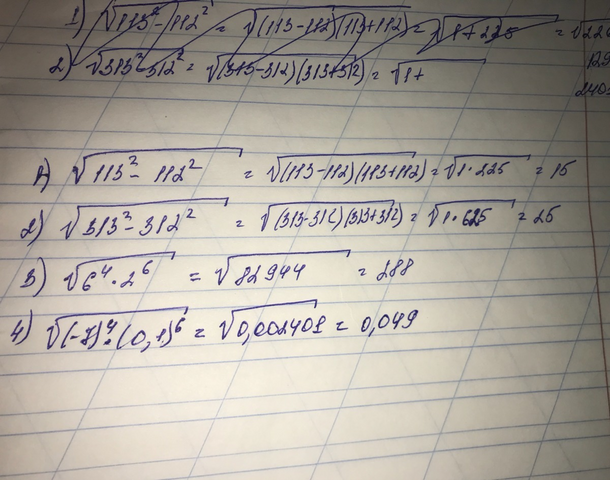 1) √113² - 112² = √(113-112)(113+112) = √1+225 = √226
2) √313² - 312² = √(313-312)(313+312) = √1+
1) √113² - 112² = √(113-112)(113+112) = √1·225 = 15
2) √313² - 312² = √(313-312)(313+312) = √1·625 = 25
3) √6⁴·2⁶ = √82944 = 288
4) √(-7)⁴·(0,1)⁶ = √0,002401 = 0,049